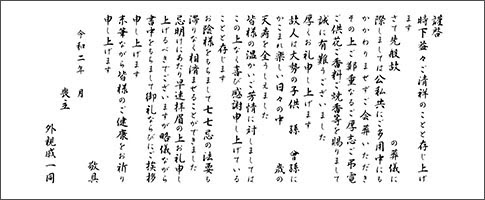 謹啓
時下益々ご清祥のことと存じ上げ
ます
さて先般故　　　の葬儀に
際しましては公私共にご多用中にも
かかわりませずご会葬いただき
その上ご鄭重なるご厚志ご弔電
ご供花ご香料ご焼香等を賜りまして
誠に有難うございました
厚くお礼申し上げます
故人は大勢の子供　孫　曾孫に
かこまれ楽しい日々の中　　歳の
天寿を全うしえました
皆様の温かいご芳情に対しましては
この上なく喜び感謝申し上げている
ことと存じます
お陰様をもちまして七七忌の法要も
滞りなく相済ませることができました
忌明けにあたり早速拝眉の上お礼申し
上げるべきでございますが略儀ながら
書中をもちまして御礼ならびにご挨拶
申し上げます
末筆ながら皆様のご健康をお祈り
申し上げます
敬具
令和二年　月
喪主
外親戚一同